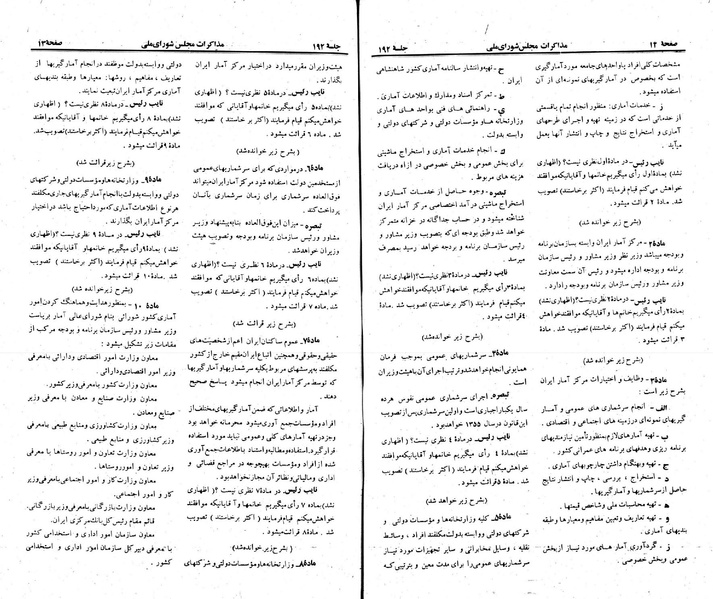 صفحهٔ ۱۲ مذاکرات مجلس شورای ملی جلسهٔ ۱۹۲
مشخصات کلی افراد یا واحدهای جامعه مورد آمارگیری
است که بخصوص در آمارگیریهای نمونه‌ای از آن
استفاده میشود.
ز - خدمات آماری: منظور انجام تمام یا قسمتی
از خدماتی است که در زمینه تهیه و اجرای طرحهای
آماری و استخراج نتایج و چاپ و انتشار آنها بعمل
می‌آید.
نایب رئیس - در ماده اول نظری نیست؟ (اظهاری
نشد) بماده اول رأی میگیریم خانمها و آقایانیکه موافقند
خواهش میکنم قیام فرمایند (اکثر برخاستند) تصویب
شد. مادهٔ ۲ قرائت میشود.
(بشرح زیر خوانده شد)
مادهٔ ۲ - مرکز آمار ایران وابسته بسازمان برنامه
و بودجه میباشد وزیر نظر وزیر مشاور و رئیس سازمان
برنامه و بودجه اداره میشود و رئیس آن سمت معاونت
وزیر مشاور و رئیس سازمان برنامه و بودجه را دارد.
نایب رئیس - در مادهٔ ۲ نظری نیست؟ (اظهاری نشد)
بمادهٔ ۲ رأی میگیریم خانمها و آقایانیکه موافقند خواهش
میکنم قیام فرمایند (اکثر برخاستند) تصویب شد. مادهٔ
۳ قرائت میشود.
(بشرح زیر خوانده شد)
مادهٔ ۳ - وظایف و اختیارات مرکز آمار ایران
بشرح زیر است:
الف - انجام سرشماری های عمومی و آمار
گیریهای نمونه‌ای در زمینه های اجتماعی و اقتصادی.
ب - تهیه آمارهای لازم بمنظور تأمین نیازمندیهای
برنامه ریزی و هدفهای برنامه های عمرانی کشور.
ج - تهیه و بهنگام داشتن چارچوبهای آماری.
د - استخراج، بررسی، چاپ و انتشار نتایج
حاصل از سرشماریها و آمارگیریها.
ه - تهیه محاسبات ملی و شاخص قیمتها.
و - تهیه تعاریف و تعیین مفاهیم و معیارها و طبقه
بندیهای آماری.
ز - گردآوری آمار های مورد نیاز از بخش
عمومی و بخش خصوصی.
ح - تهیه و انتشار سالنامه آماری کشور شاهنشاهی
ایران.
ط - تمرکز اسناد و مدارک و اطلاعات آماری.
ی - راهنمائی های فنی بواحد های آماری
وزارتخانه ها و مؤسسات دولتی و شرکتهای دولتی و
وابسته بدولت.
ک - انجام خدمات آماری و استخراج ماشینی
برای بخش عمومی و بخش خصوصی در ازاء دریافت
هزینه های مربوط.
تبصره - وجوه حاصل از خدمات آماری و
استخراج ماشینی درآمد اختصاصی مرکز آمار ایران
شناخته میشود و در حساب جداگانه در خزانه متمرکز
خواهد شد وطبق بودجه ای که بتصویب وزیر مشاور و
رئیس سازمان برنامه و بودجه خواهد رسید بمصرف
میرسد.
نایب رئیس - در مادهٔ ۳ نظری نیست؟ (اظهاری نشد)
بمادهٔ ۳ رأی میگیریم خانمها و آقایانیکه موافقند خواهش
میکنم قیام فرمایند (اکثر برخاستند) تصویب شد. مادهٔ
۴ قرائت میشود.
(بشرح زیر خوانده شد)
مادهٔ ۴ - سرشماریهای عمومی بموجب فرمان
همایونی انجام خواهد شد و ترتیب اجرای آن با هیئت وزیران
خواهد بود.
تبصره - اجرای سرشماری عمومی نفوس هر ده
سال یکبار اجباری است و اولین سرشماری پس از تصویب
این قانون در سال ۱۳۵۵ خواهد بود.
نایب رئیس - در مادهٔ ۴ نظری نیست؟ (اظهاری
نشد) بمادهٔ ۴ رأی میگیریم خانمها و آقایانیکه موافقند
خواهش میکنم قیام فرمایند (اکثر برخاستند) تصویب
شد. مادهٔ ۵ قرائت میشود.
(بشرح زیر خوانده شد)
مادهٔ ۵ - کلیه وزارتخانه ها و مؤسسات دولتی و
شرکتهای دولتی و وابسته بدولت مکلفند افراد، وسائط
نقلیه، وسایل مخابراتی و سایر تجهیزات مورد نیاز
سرشماریهای عمومی را برای مدت معین و بترتیبی که
جلسهٔ ۱۹۲ مذاکرات مجلس شورای ملی صفحهٔ ۱۳
هیئت وزیران مقرر میدارد در اختیار مرکز آمار ایران
بگذارند.
نایب رئیس - در مادهٔ ۵ نظری نیست؟ (اظهاری
نشد) بمادهٔ ۵ رأی میگیریم خانمها و آقایانی که موافقند
خواهش میکنم قیام فرمایند (اکثر برخاستند) تصویب
شد. مادهٔ ۶ قرائت میشود.
(بشرح زیر خوانده شد)
مادهٔ ۶ - در مواردی که برای سرشماریهای عمومی
از مستخدمین دولت استفاده شود مرکز آمار ایران میتواند
فوق العاده سرشماری برای زمان سرشماری بآنان
پرداخت کند.
تبصره - میزان این فوق العاده بنا بپیشنهاد وزیر
مشاور و رئیس سازمان برنامه و بودجه و تصویب هیئت
وزیران خواهد شد.
نایب رئیس - در مادهٔ ۶ نظری نیست؟ (اظهاری
نشد) بمادهٔ ۶ رأی میگیریم خانمها و آقایانی که موافقند
خواهش میکنم قیام فرمایند (اکثر برخاستند) تصویب
شد. مادهٔ ۷ قرائت میشود.
(بشرح زیر قرائت شد)
مادهٔ ۷ - عموم ساکنان ایران اعم از شخصیت های
حقیقی و حقوقی و همچنین اتباع ایران مقیم خارج از کشور
مکلفند به پرسشهای مربوط بکلیه سرشماریها و آمارگیریها
که توسط مرکز آمار ایران انجام میشود پاسخ صحیح
دهند.
آمار و اطلاعاتی که ضمن آمارگیریهای مختلف از
افراد و مؤسسات جمع آوری میشود محرمانه خواهد بود
و جز در تهیه آمارهای کلی و عمومی نباید مورد استفاده
قرار گیرد. استفاده و مطالبه و استناد باطلاعات جمع آوری
شده از افراد و مؤسسات بهیچوجه در مراجع قضائی و
اداری و مالیاتی و نظائر آن مجاز نخواهد بود.
نایب رئیس - در مادهٔ ۷ نظری نیست؟ (اظهاری
نشد) بمادهٔ ۷ رأی میگیریم خانمها و آقایانیکه موافقند
خواهش میکنم قیام فرمایند (اکثر برخاستند) تصویب
شد. مادهٔ ۸ قرائت میشود.
(بشرح زیر خوانده شد)
مادهٔ ۸ - وزارتخانه ها و مؤسسات دولتی و شرکتهای
دولتی و وابسته بدولت موظفند در انجام آمارگیریها از
تعاریف، مفاهیم، روشها، معیارها و طبقه بندیهای
آماری مرکز آمار ایران تبعیت نمایند.
نایب رئیس - در مادهٔ ۸ نظری نیست؟ (اظهاری
نشد) بمادهٔ ۸ رأی میگیریم خانمها و آقایانیکه موافقند
خواهش میکنم قیام فرمایند (اکثر برخاستند) تصویب شد.
مادهٔ ۹ قرائت میشود.
(بشرح زیر قرائت شد)
مادهٔ ۹ - وزارتخانه ها و مؤسسات دولتی و شرکتهای
دولتی و وابسته بدولت با انجام آمارگیریهای جاری مکلفند
هر نوع اطلاعات آماری که مورد احتیاج باشد در اختیار
مرکز آمار ایران بگذارند.
نایب رئیس - در مادهٔ ۹ نظری نیست؟ (اظهاری
نشد) بمادهٔ ۹ رأی میگیریم خانمها و آقایانیکه موافقند
خواهش میکنم قیام فرمایند (اکثر برخاستند) تصویب
شد. مادهٔ ۱۰ قرائت میشود.
(بشرح زیر خوانده شد)
مادهٔ ۱۰ - بمنظور هدایت و هماهنگ کردن امور
آماری کشور شورائی بنام شورای عالی آمار بریاست
وزیر مشاور و رئیس سازمان برنامه و بودجه مرکب از
مقامات زیر تشکیل میشود:
معاون وزارت امور اقتصادی و دارائی بمعرفی
وزیر امور اقتصادی و دارائی.
معاون وزارت کشور بمعرفی وزیر کشور.
معاون وزارت صنایع و معادن با معرفی وزیر
صنایع و معادن.
معاون وزارت کشاورزی و منابع طبیعی بامعرفی
وزیر کشاورزی و منابع طبیعی.
معاون وزارت تعاون و امور روستاها با معرفی
وزیر تعاون و امور روستاها.
معاون وزارت کار و امور اجتماعی بامعرفی وزیر
کار و امور اجتماعی.
معاون وزارت بازرگانی بامعرفی وزیر بازرگانی.
قائم مقام رئیس کل بانک مرکزی ایران.
معاون سازمان امور اداری و استخدامی کشور
با معرفی دبیر کل سازمان امور اداری و استخدامی
کشور.